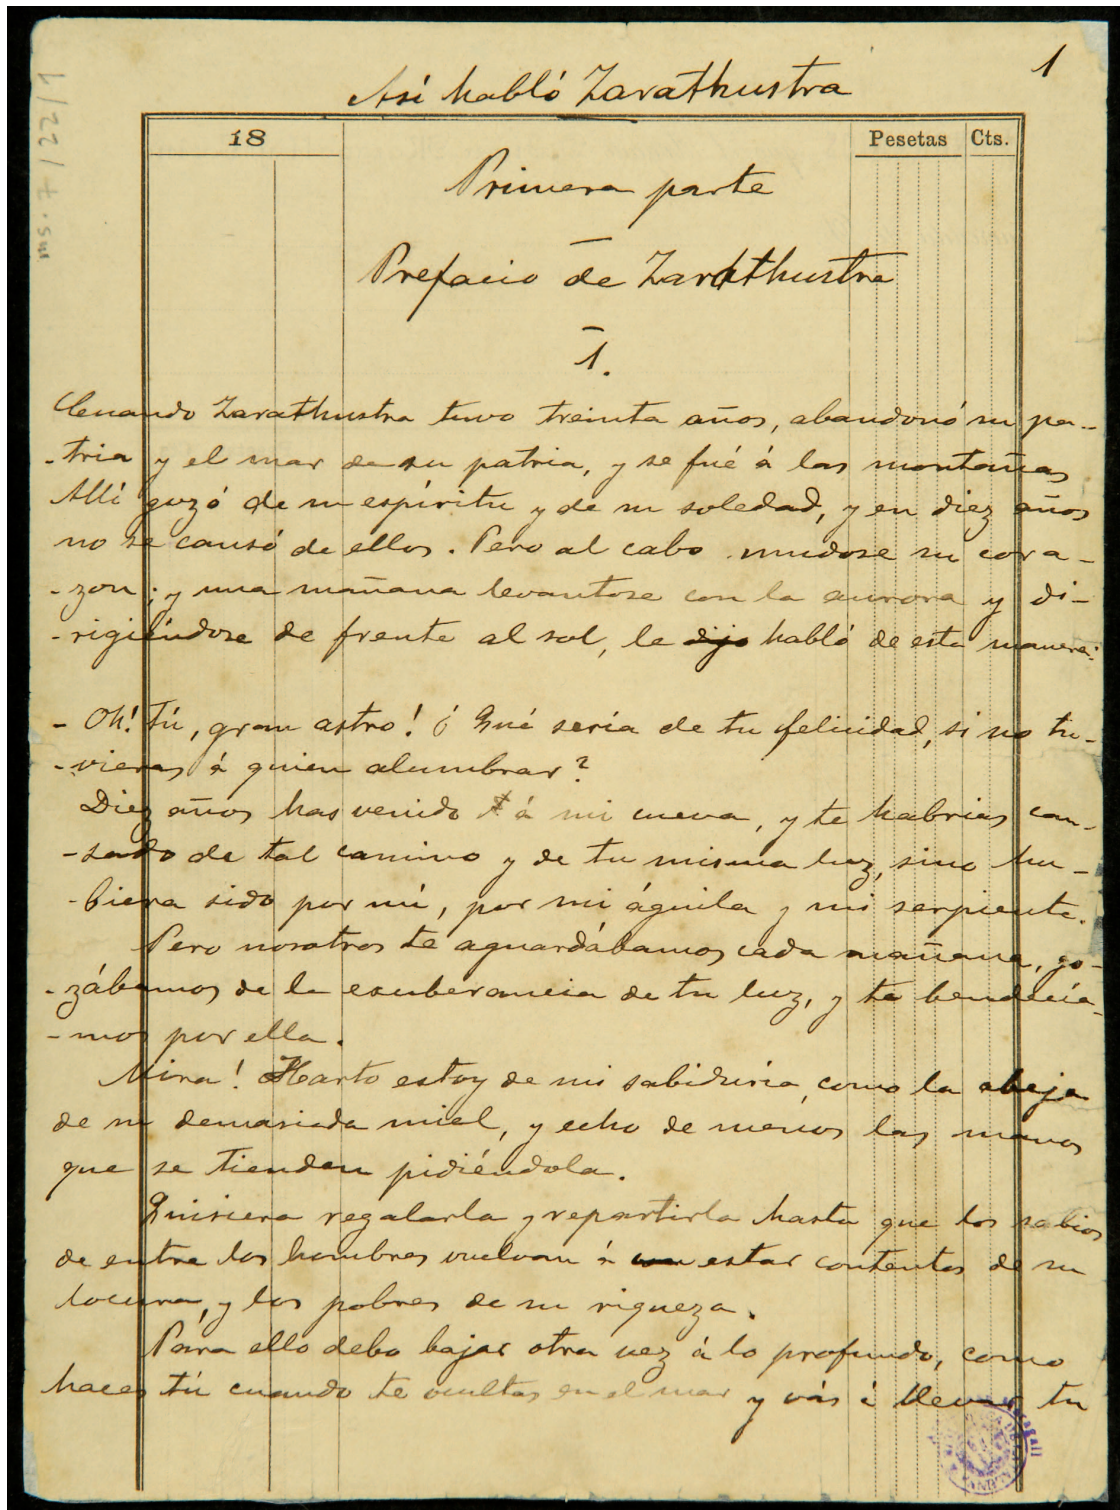 1
ms. 7/22/1
Así habló Zarathustra
18 Pesetas Cts.
Primera parte
Prefacio de Zarathustra
1.
Cuando Zarathustra tuvo treinta años, abandonó su pa-
-tria y el mar de su patria, y se fué á las montañas
Allí gozó de su espíritu y de su soledad, y en diez años
no se cansó de ellos. Pero al cabo mudose su cora-
-zon; y una mañana levantose con la aurora y di-
-rigiéndose de frente al sol, le dijo habló de esta manera:
- Oh! Tú, gran astro! ¿Qué sería de tu felicidad, si no tu-
-vieras á quien alumbrar?
Diez años has venido á mi cueva, y te habrias can-
-sado de tal camino y de tu misma luz, sino hu-
-biera sido por mí, por mi águila y mi serpiente.
Pero nosotros te aguardábamos cada mañana, go-
-zábamos de la exuberancia de tu luz, y te bendecía-
-mos por ella.
Mira! Harto estoy de mi sabiduría, como la abeja
de su demasiada miel, y echo de menos las manos
que se tienden pidiéndola.
Quisiera regalarla y repartirla hasta que los sabios
de entre los hombres vuelvan á estar contentos de su
locura, y los pobres de su riqueza.
Para ello debo bajar otra vez á lo profundo, como
haces tú cuando te ocultas en el mar y vás á llevar tu